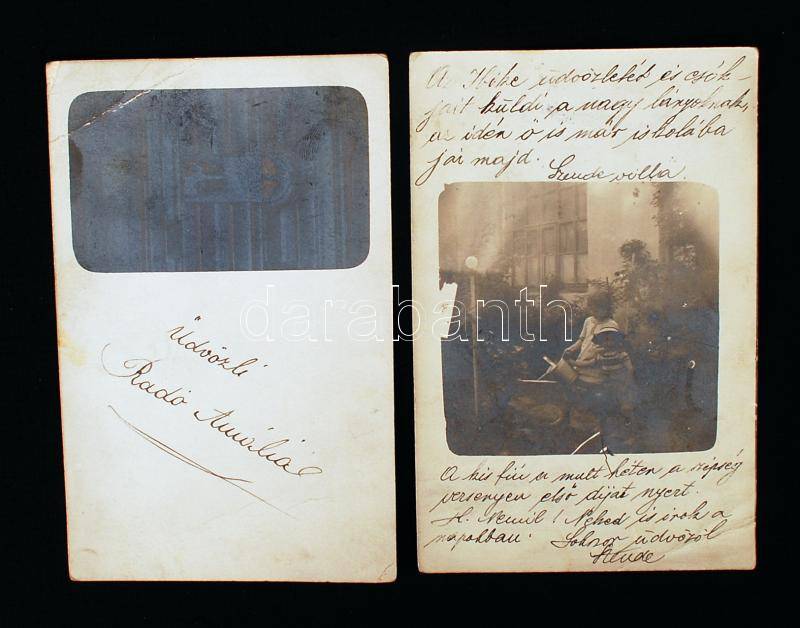 Üdvözli
Radó Amália
Az Höke üdvözletét és csók-
jait küldi a nagy lányoknak,
az idén ő is már iskolába
jár majd.
Szende villa.
A kis fiú a mult héten a szépség
versenyen első dijat nyert.
H. Nemil! Neked is irok a
napokban. Sokszor üdvözöl
Szende
darabanth